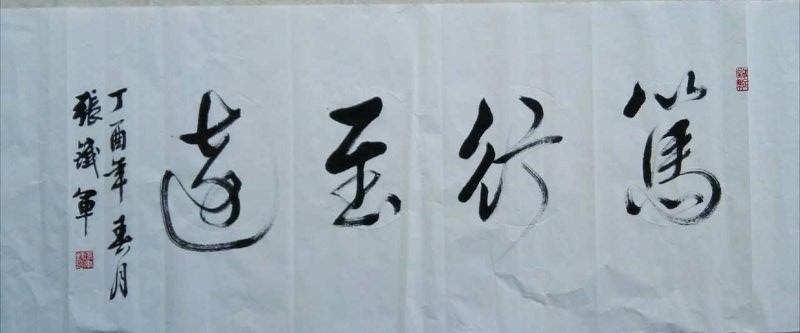 篤行至遠
丁酉年春月
張鐵軍